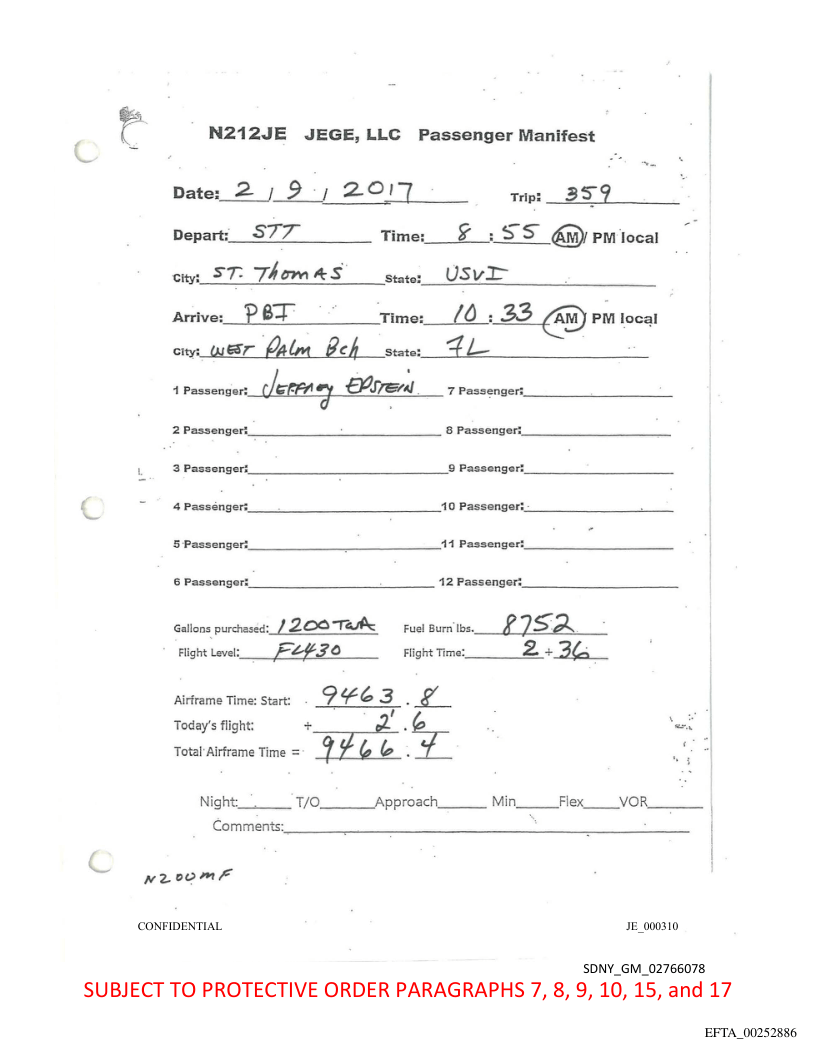 N212JE JEGE, LLC Passenger Manifest
Date: 2 / 9 / 2017 Trip: 359
Depart: STT Time: 8 : 55 AM/ PM local
City: ST. ThomAS State: USVI
Arrive: PBI Time: 10 : 33 AM/ PM local
City: WEST PAlm Bch State: FL
1 Passenger: JEFFREY EPSTEIN 7 Passenger:
2 Passenger: 8 Passenger:
3 Passenger: 9 Passenger:
4 Passenger: 10 Passenger:
5 Passenger: 11 Passenger:
6 Passenger: 12 Passenger:
Gallons purchased: 1200 Fuel Burn lbs. 8752
Flight Level: FL430 Flight Time: 2 + 36
Airframe Time: Start: 9463 . 8
Today's flight: + 2 . 6
Total Airframe Time = 9466 . 4
Night: T/O Approach Min Flex VOR
Comments:
N200MF
CONFIDENTIAL JE_000310
SDNY_GM_02766078
SUBJECT TO PROTECTIVE ORDER PARAGRAPHS 7, 8, 9, 10, 15, and 17
EFTA_00252886